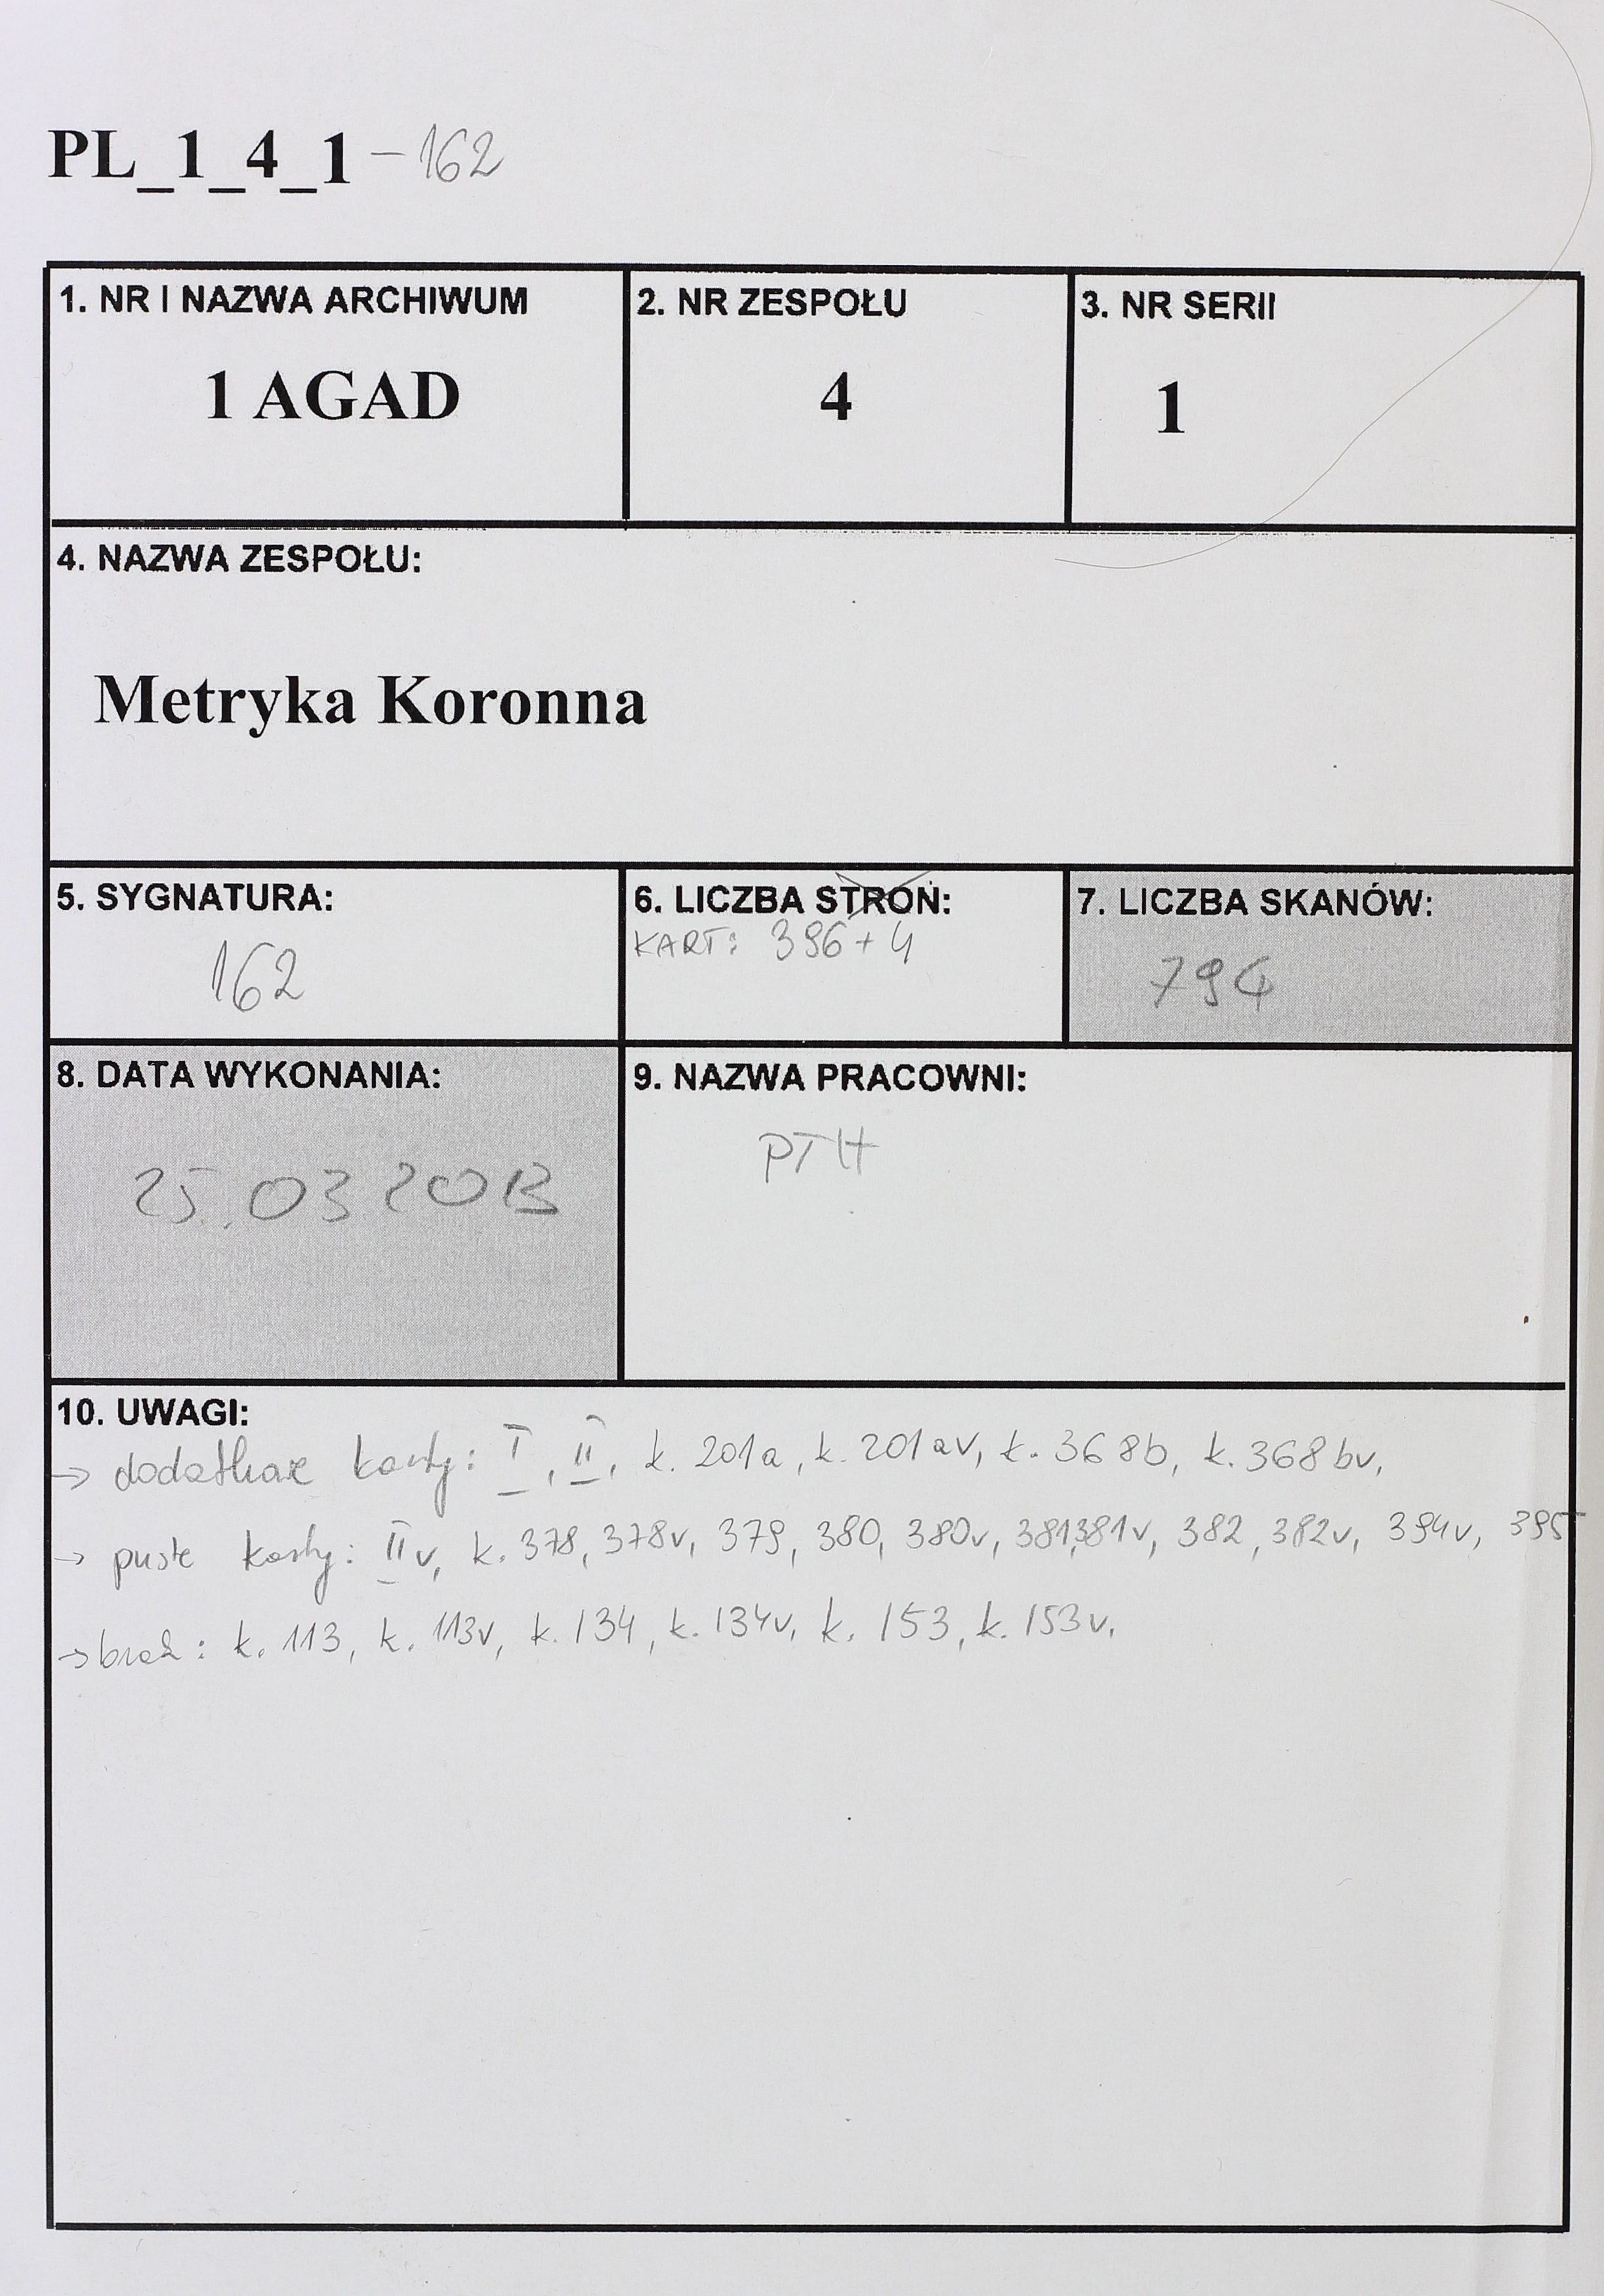 PL_1_4_1 – 162
1. NR I NAZWA ARCHIWUM
1 AGAD
2. NR ZESPOŁU
4
3. NR SERII
1
4. NAZWA ZESPOŁU:
Metryka Koronna
5. SYGNATURA:
162
6. LICZBA STRON:
KART: 396 + 4
7. LICZBA SKANÓW:
794
8. DATA WYKONANIA:
25.03 2013
9. NAZWA PRACOWNI:
PTH
10. UWAGI:
→ dodatkowe karty: I, II, k. 201a, k. 201av, k. 368b, k. 368bv,
→ puste karty: IIv, k. 378, 378v, 379, 380, 380v, 381, 381v, 382, 382v, 394v, 395
→ brak: k. 113, k. 113v, k. 134, k. 134v, k. 153, k. 153v.